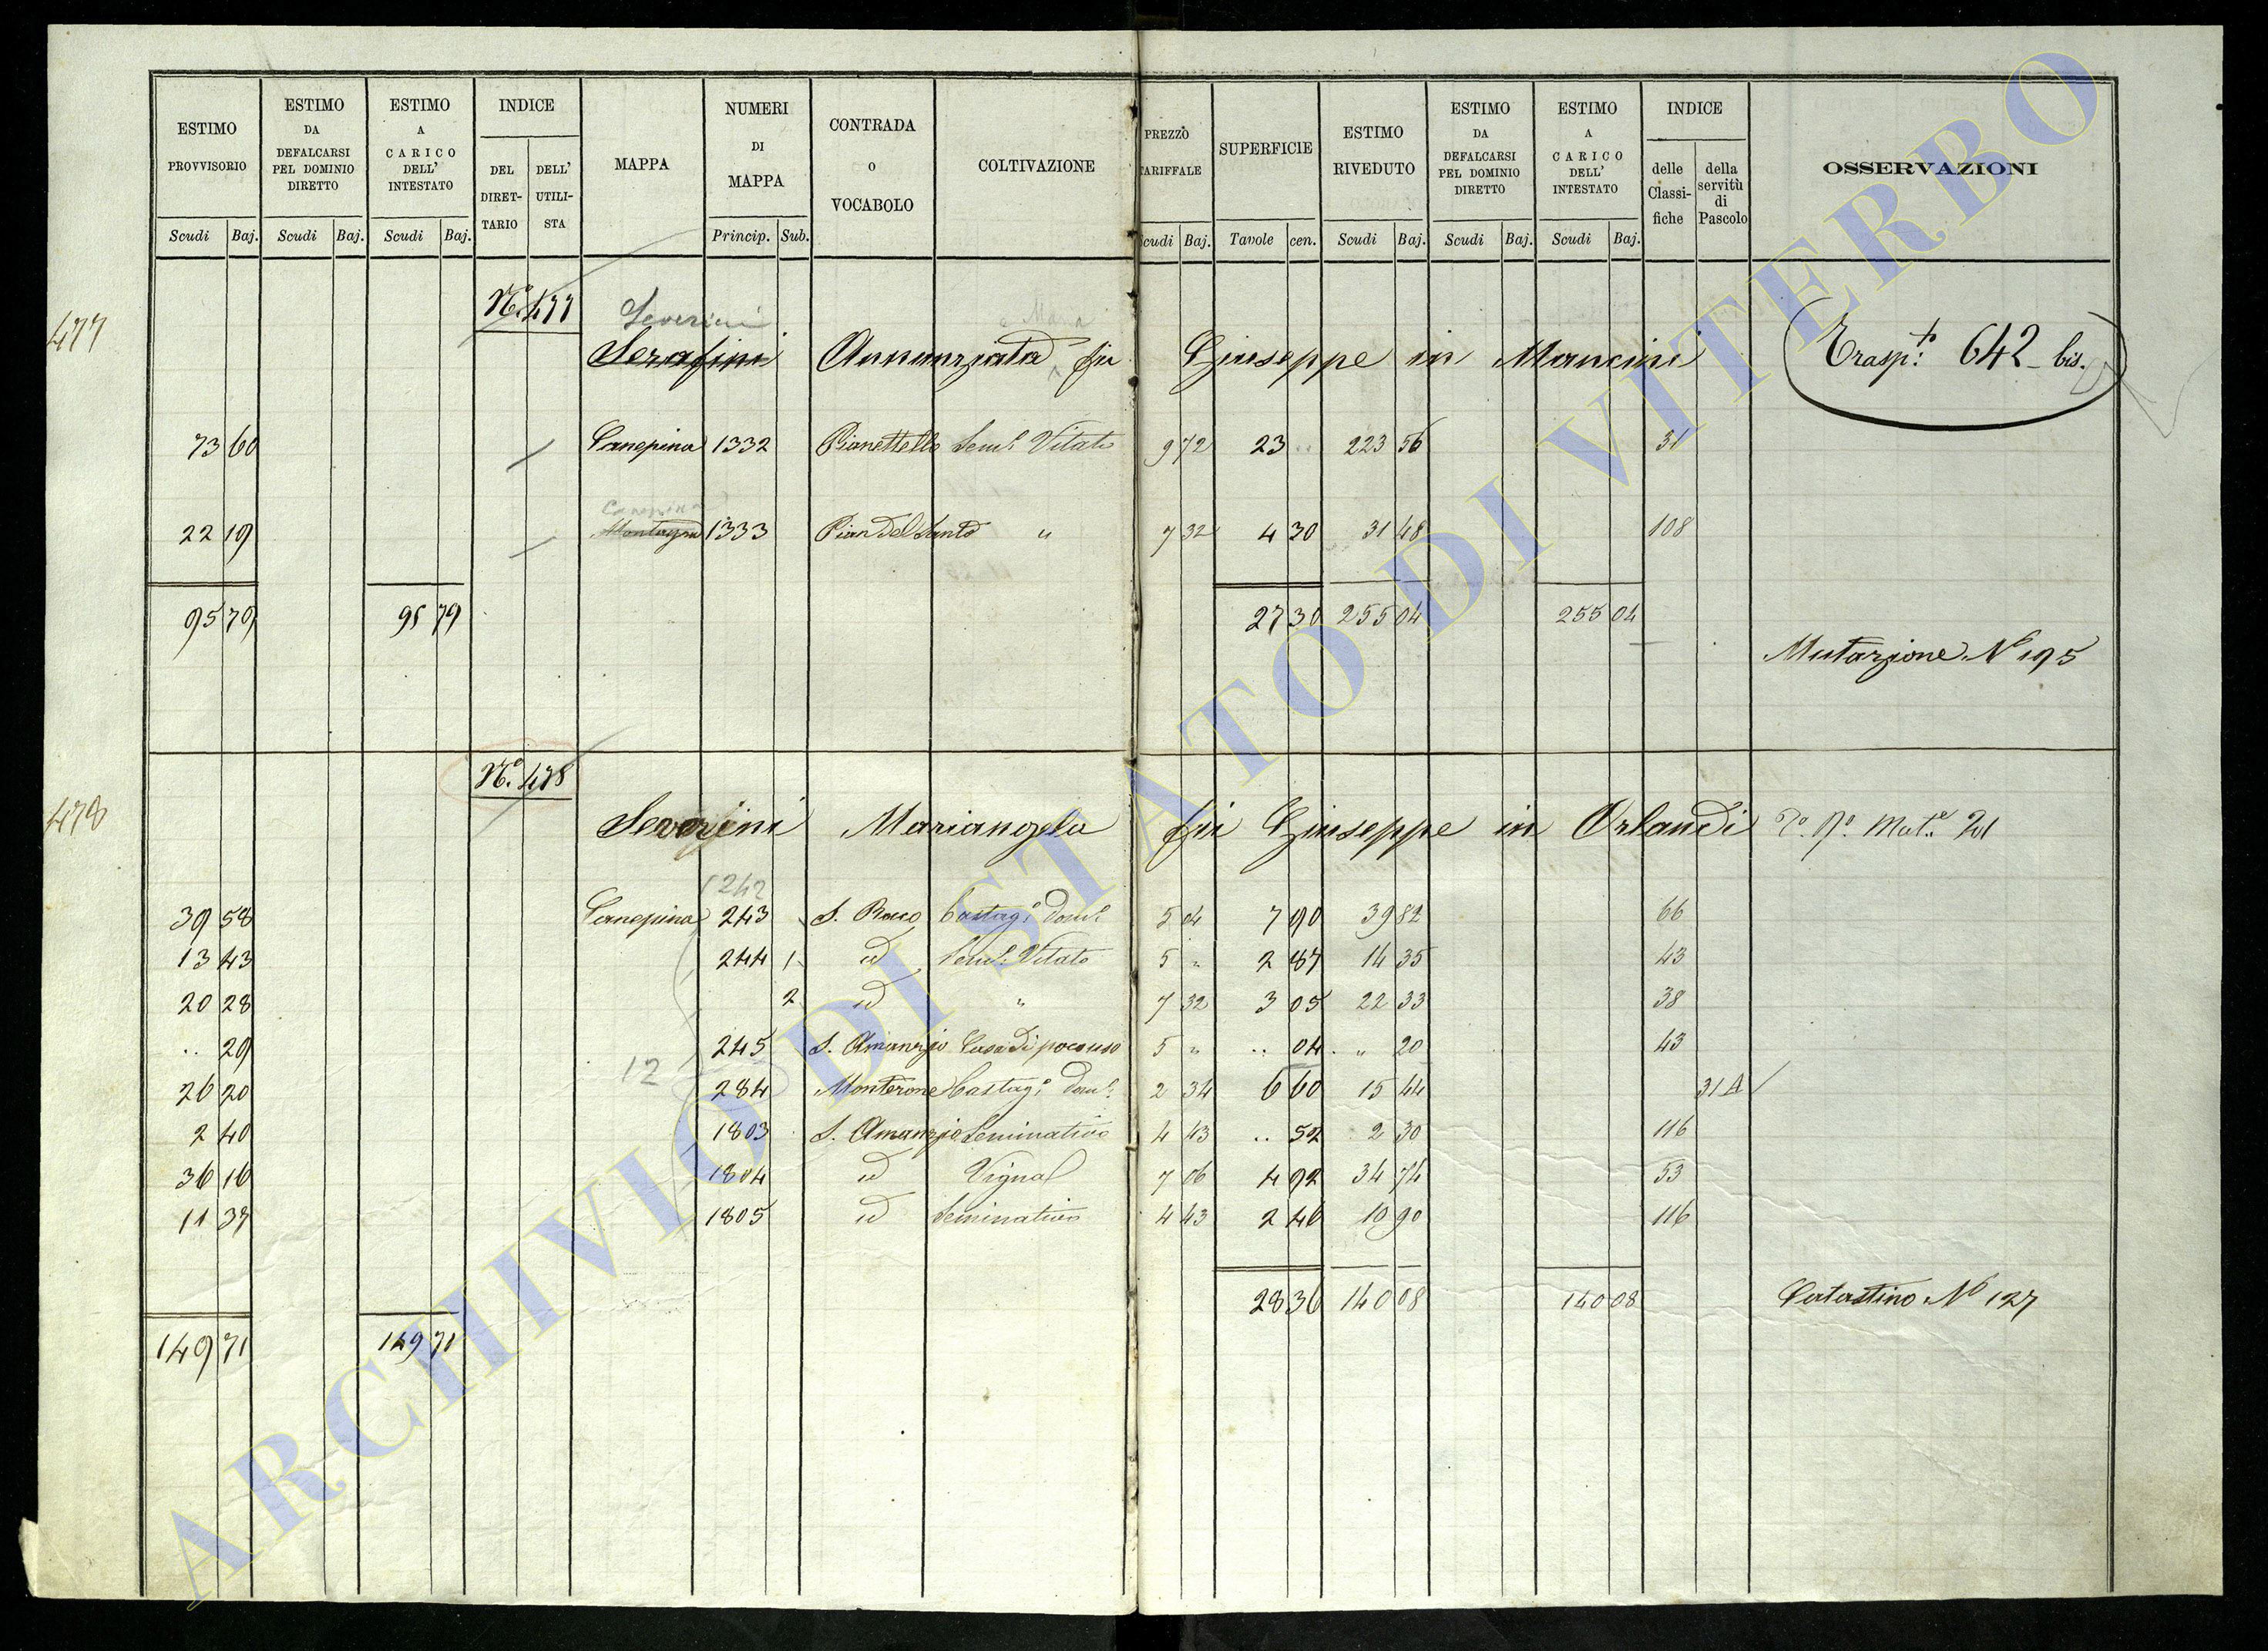 ESTIMO PROVVISORIO
ESTIMO DA DEFALCARSI PEL DOMINIO DIRETTO
ESTIMO A CARICO DELL' INTESTATO
INDICE
DEL DIRET-TARIO
DELL' UTILI-STA
MAPPA
NUMERI DI MAPPA
CONTRADA o VOCABOLO
COLTIVAZIONE
PREZZO TARIFFALE
SUPERFICIE
ESTIMO RIVEDUTO
ESTIMO DA DEFALCARSI PEL DOMINIO DIRETTO
ESTIMO A CARICO DELL' INTESTATO
INDICE
delle Classi-fiche
della servitù di Pascolo
OSSERVAZIONI
Scudi Baj. Scudi Baj. Scudi Baj. Princip. Sub. Scudi Baj. Tavole cen. Scudi Baj. Scudi Baj. Scudi Baj.
477
N.° 477
Severini
Serafini Annunziata fu Giuseppe in Mancini Trasp.to 642 bis.
73 60 Canepina 1332 Pianettello Sem.e Vitato 9 72 23 .. 223 56 31
Canepina
22 19 Montagna 1333 Pian del Santo " 7 32 4 30 31 48 108
95 79 95 79 27 30 255 04 255 04
Mutazione N 195
478
N.° 478
Severini Mariangela fu Giuseppe in Orlandi
242
39 58 Canepina 243 S. Rocco Castag.o Dom.e 5 04 7 90 39 82 66
13 43 244 1 id Sem.e Vitato 5 " 2 87 14 35 43
20 28 2 id " 7 32 3 05 22 33 38
.. 29 245 S. Amanzio Casa di poco uso 5 " .. 04 " 20 43
12
26 20 284 Monterone Castag.o Dom.e 2 34 6 60 15 44 31 A
2 40 1803 S. Amanzio Seminativo 4 43 .. 52 2 30 116
36 16 1804 id Vigna 7 06 4 92 34 74 53
11 37 1805 id Seminativo 4 43 2 46 10 90 116
28 36 140 08 140 08 Catastino N° 127
149 71 149 71
ARCHIVIO DI STATO DI VITERBO